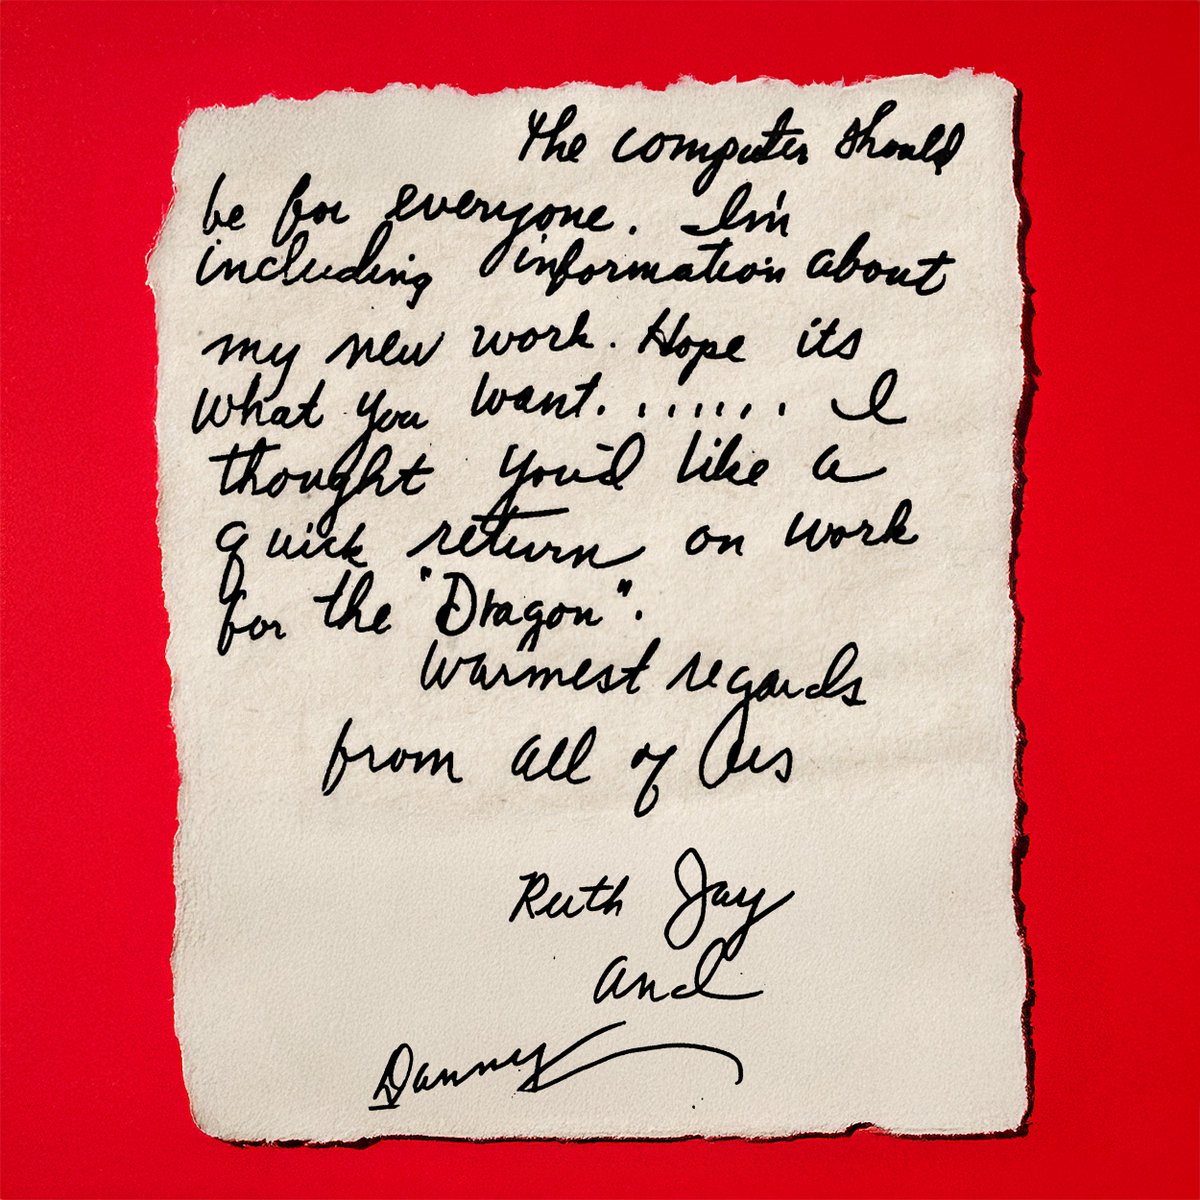 The computer should
be for everyone. I'm
including information about
my new work. Hope its
what you want. . . . . . . I
thought you'd like a
quick return on work
for the "Dragon".
Warmest regards
from all of us
Ruth Jay
and
Danny